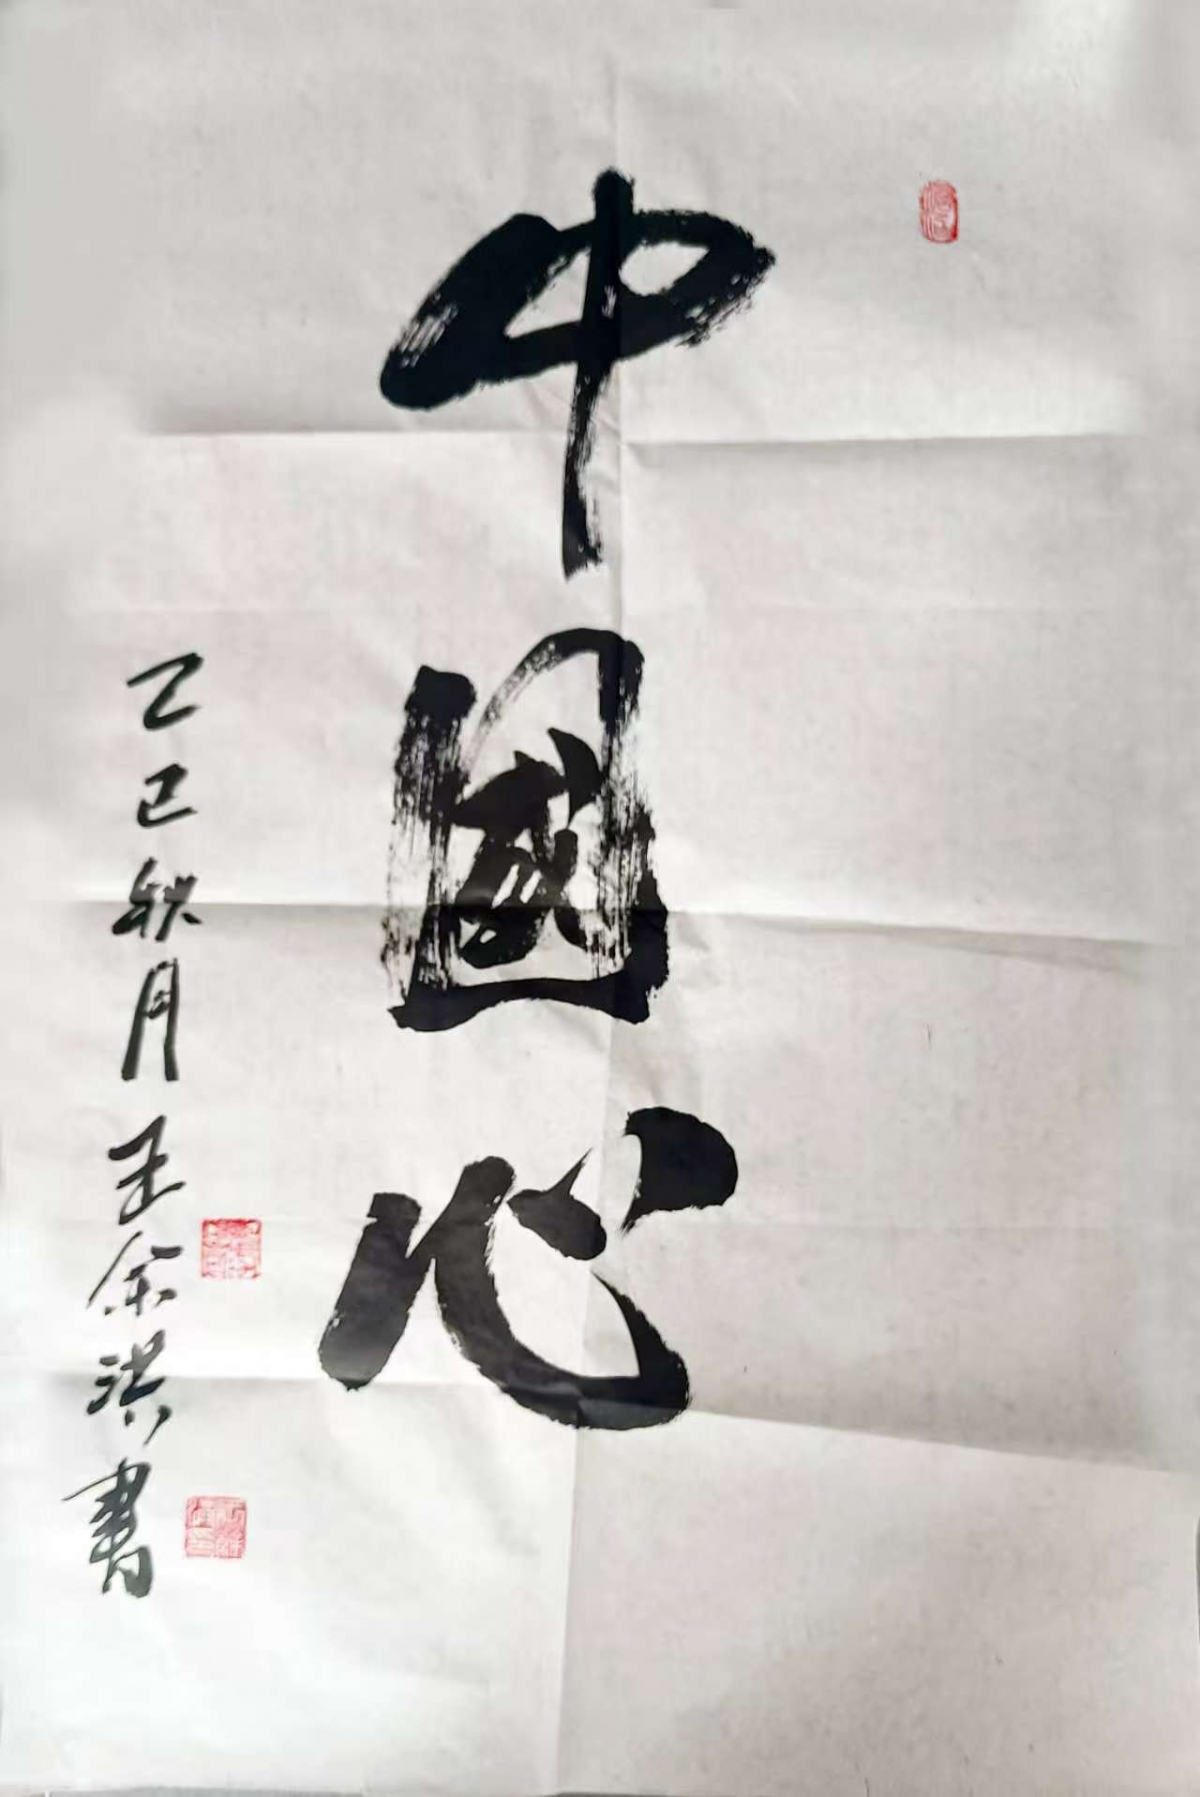 中國心
乙巳秋月王余洪書